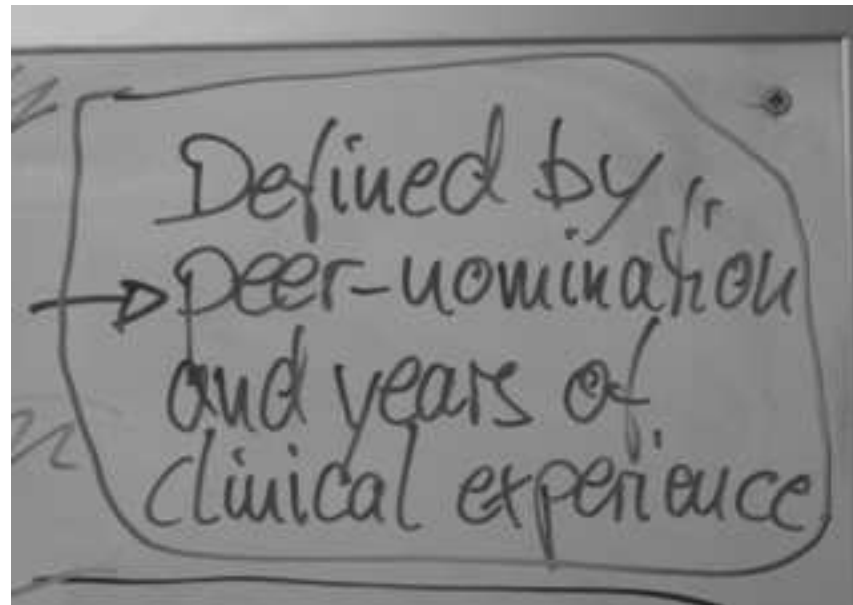 Defined by
peer-nomination
and years of
clinical experience